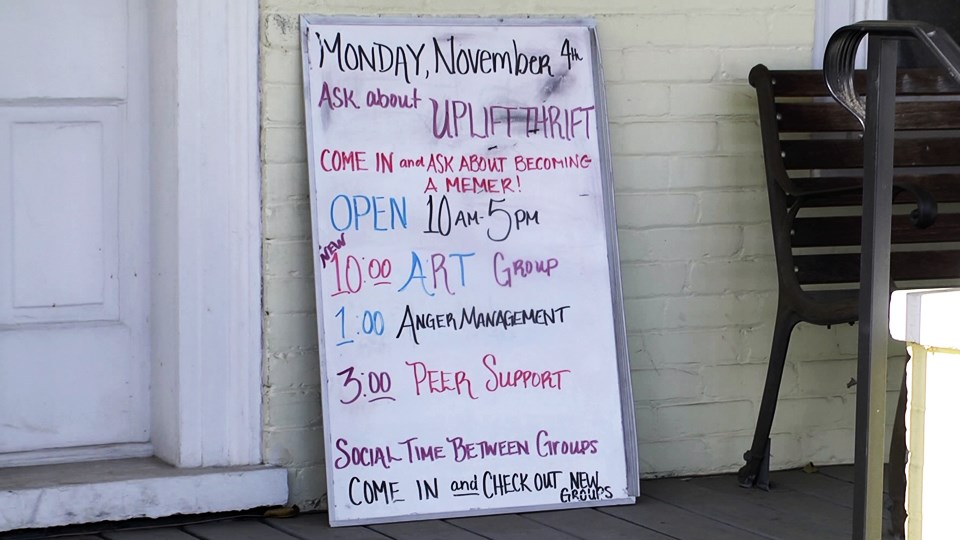 MONDAY, November 4th
ASK about UPLIFT THRIFT
COME IN and ASK ABOUT BECOMING
A MEMER!
OPEN 10 AM-5 PM
NEW
10:00 ART GROUP
1:00 ANGER MANAGEMENT
3:00 PEER SUPPORT
SOCIAL TIME BETWEEN GROUPS
COME IN and CHECK OUT NEW
GROUPS